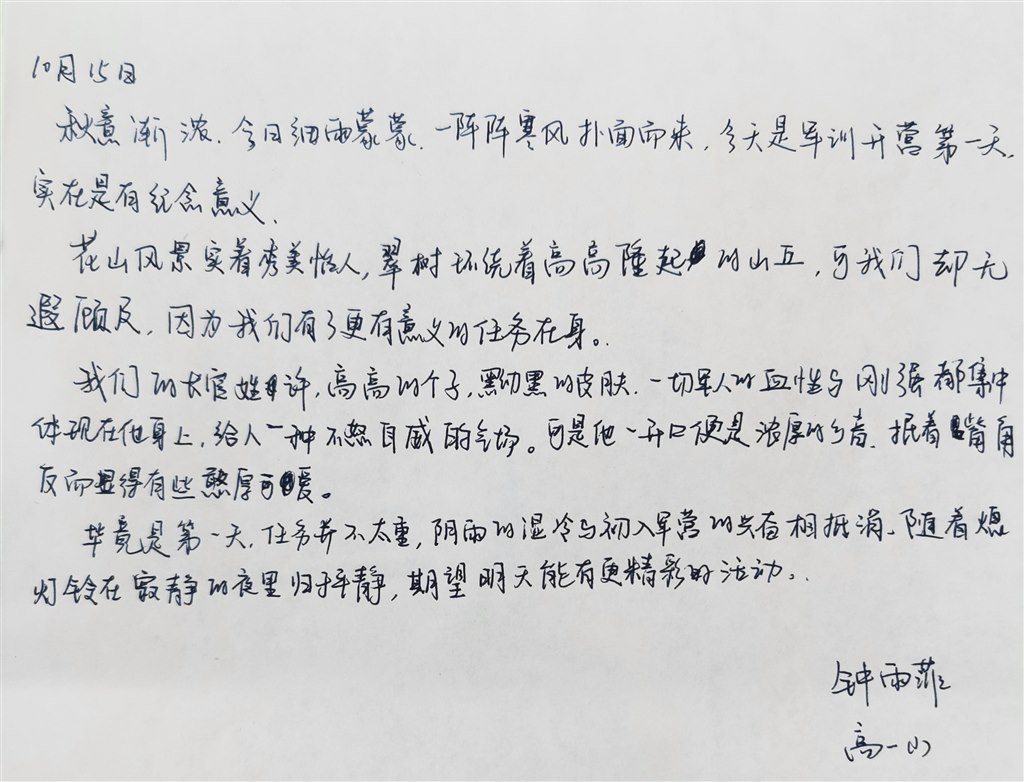 10月15日
秋意渐浓,今日细雨蒙蒙,一阵阵寒风扑面而来,今天是军训开营第一天,
实在是有纪念意义。
花山风景实着秀美怡人,翠树环绕着高高隆起的山丘,可我们却无
遐顾及,因为我们有了更有意义的任务在身。
我们的大官姓许,高高的个子,黑黝黑的皮肤,一切军人的血性与刚强都集中
体现在他身上,给人一种不怒自威的气场。可是他一开口便是浓厚的乡音,抿着嘴角
反而显得有些憨厚可爱。
毕竟是第一天,任务并不太重,阴雨的湿冷与初入军营的兴奋相抵消,随着熄
灯铃在寂静的夜里归于平静,期望明天能有更精彩的活动。
钟雨菲
高一